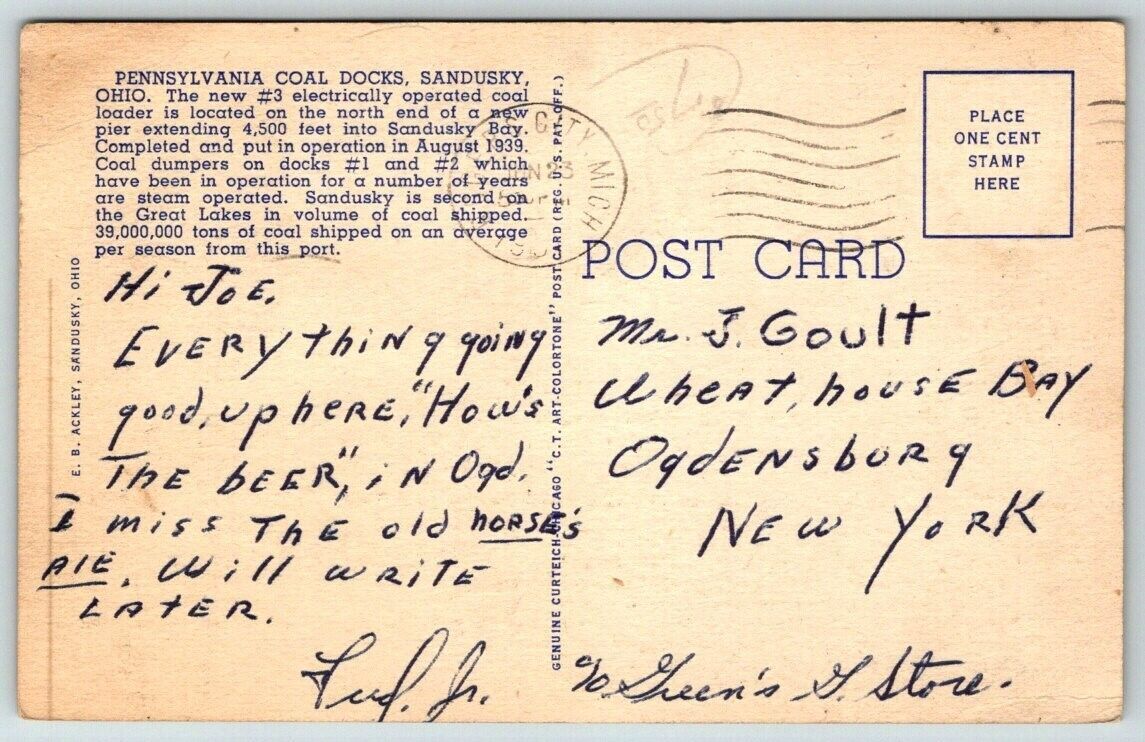 PENNSYLVANIA COAL DOCKS, SANDUSKY,
OHIO. The new #3 electrically operated coal
loader is located on the north end of a new
pier extending 4,500 feet into Sandusky Bay.
Completed and put in operation in August 1939.
Coal dumpers on docks #1 and #2 which
have been in operation for a number of years
are steam operated. Sandusky is second on
the Great Lakes in volume of coal shipped.
39,000,000 tons of coal shipped on an average
per season from this port.
E. B. ACKLEY, SANDUSKY, OHIO
Hi JOE.
EVERYthiNg going
good, up hERE, "How's
THE bEER", iN Ogd.
I miss THE old hORSE'S
AlE. Will WRITE
LATER.
Jr.
GENUINE CURTEICH-CHICAGO "C.T. ART-COLORTONE" POST CARD (REG. U.S. PAT. OFF.)
CITY, MICH
JUN 23
PLACE
ONE CENT
STAMP
HERE
POST CARD
Mr. J. Goult
WhEAT, housE BAY
OgdENsburg
NEW YORK
c/o Green's G. Store.